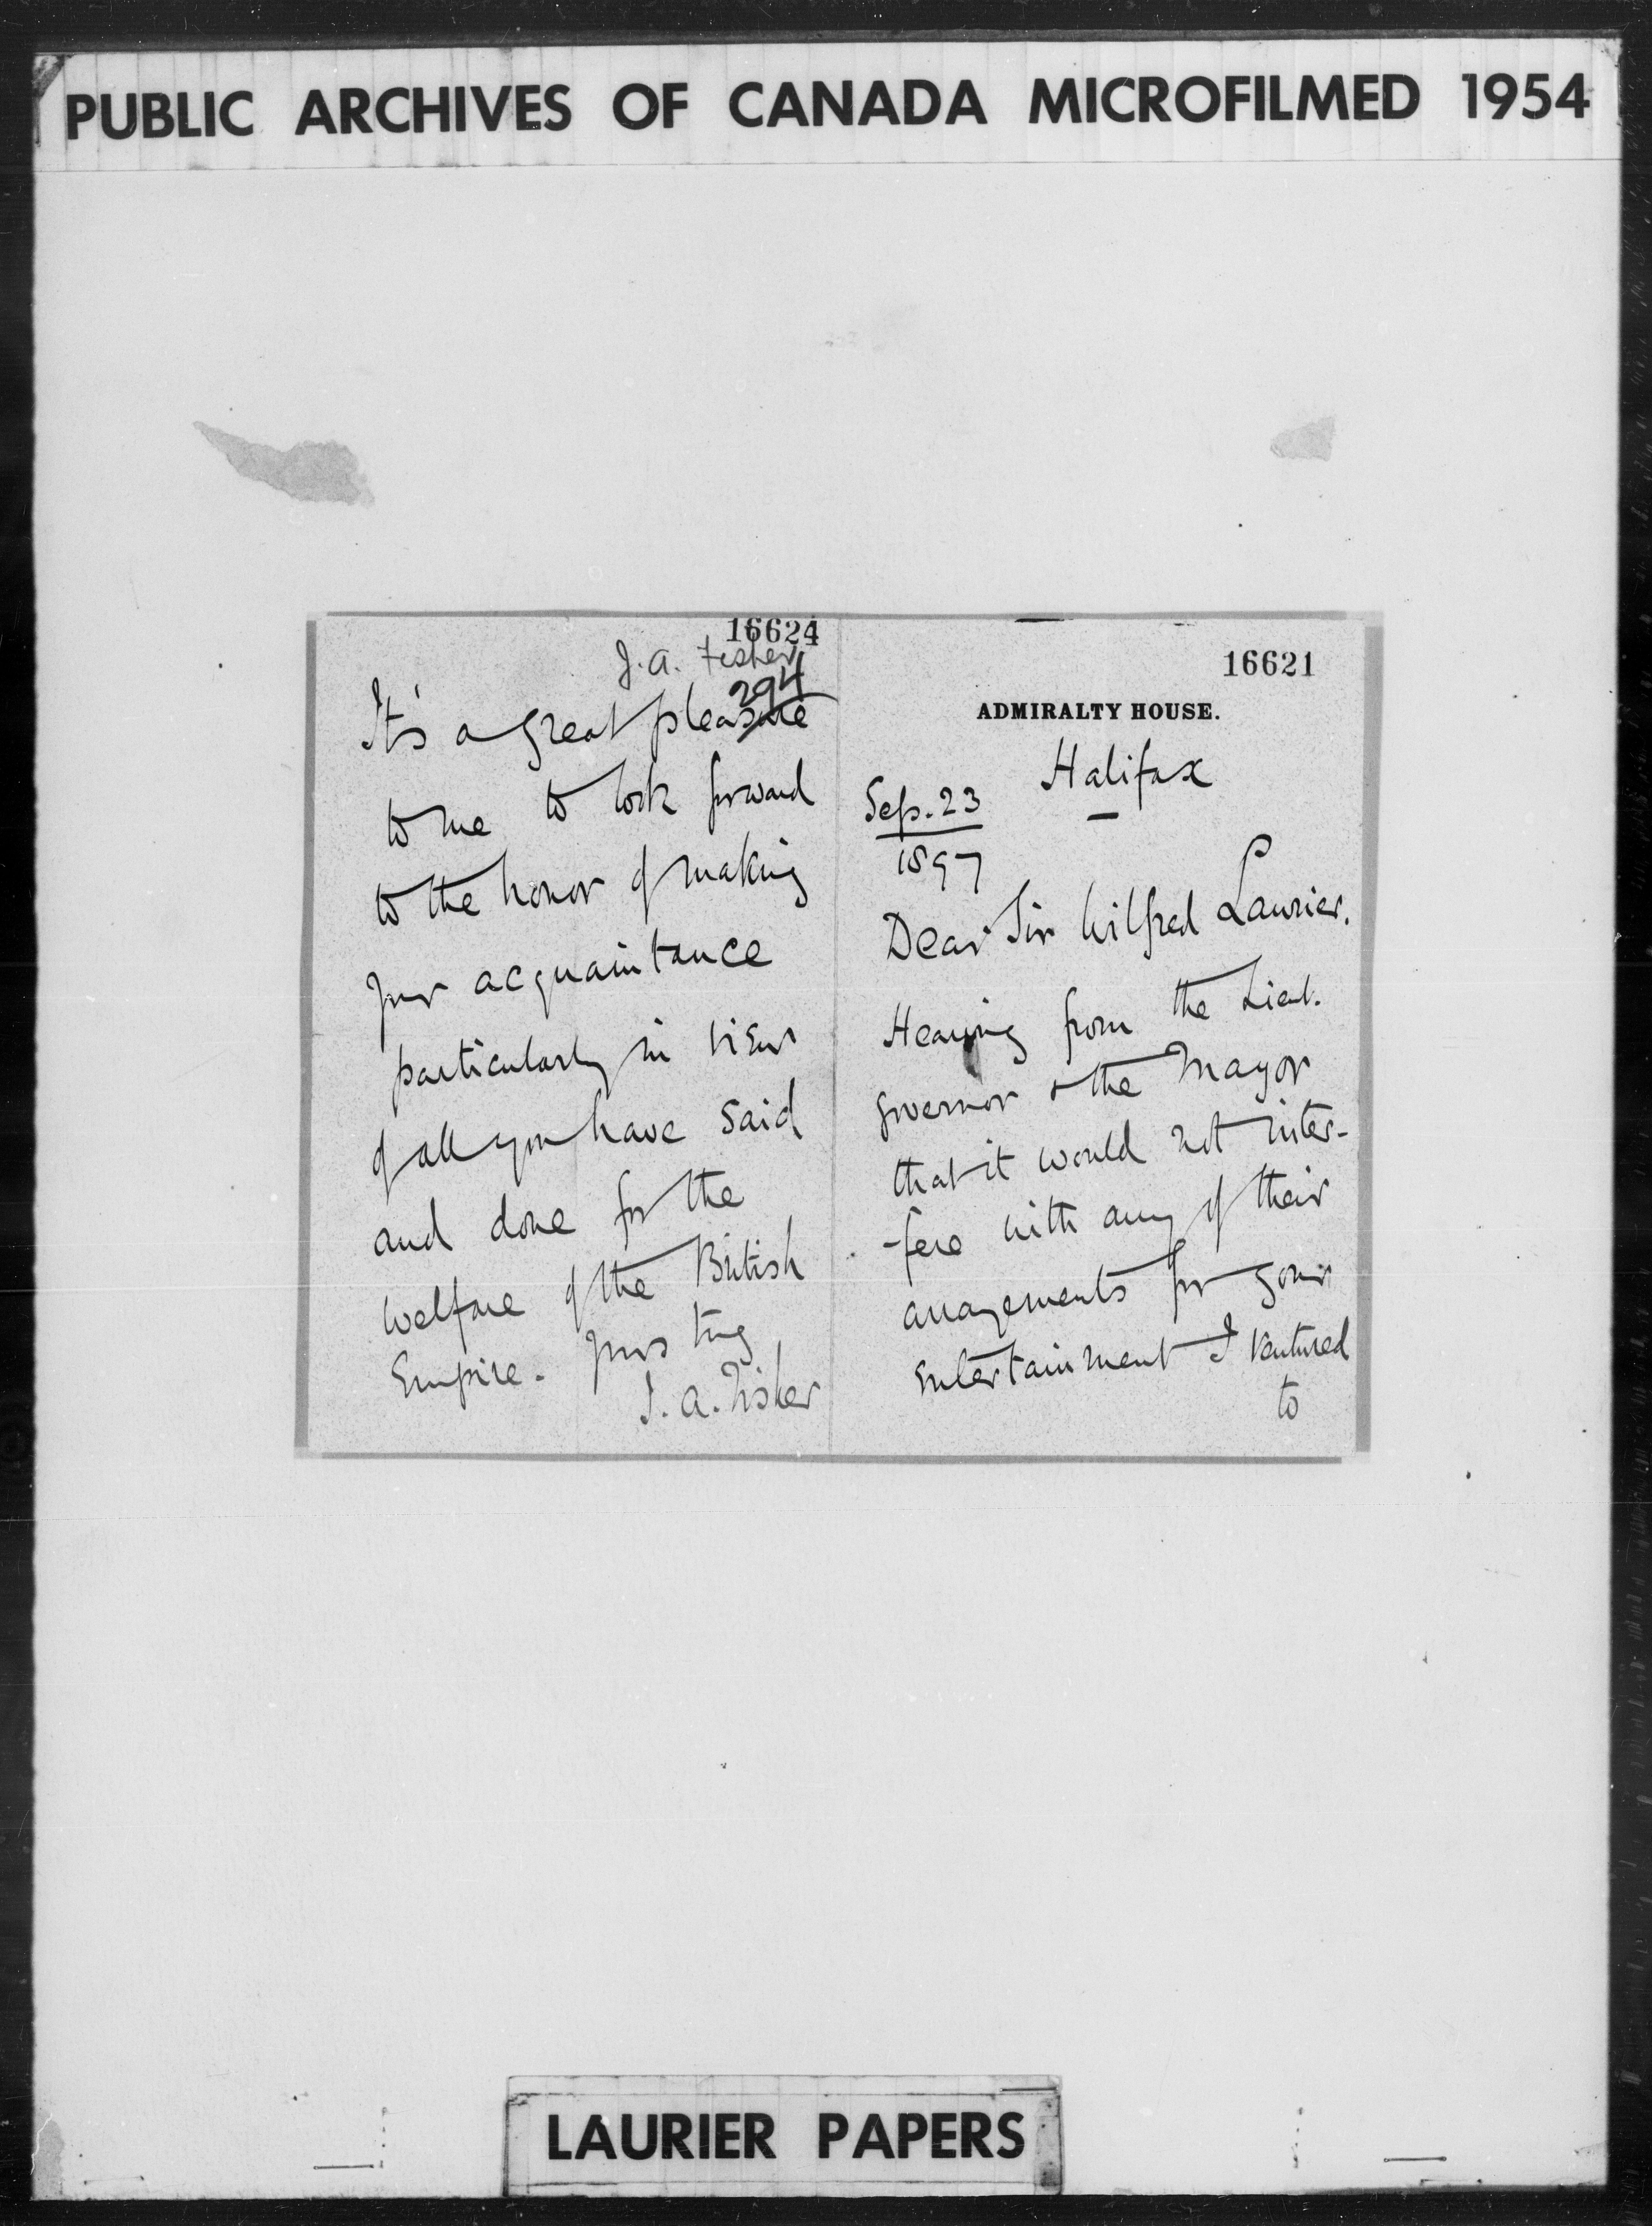 PUBLIC ARCHIVES OF CANADA MICROFILMED 1954
16624
J. A. Fisher
294
It's a great pleasure
to me to look forward
to the honor of making
your acquaintance
particularly in view
of all you have said
and done for the
welfare of the British
Empire. Yours truly
J. A. Fisher
16621
ADMIRALTY HOUSE.
Halifax
Sep. 23
1897
Dear Sir Wilfred Laurier.
Hearing from the Lieut.
governor & the Mayor
that it would not inter-
-fere with any of their
arragements for your
entertainment I ventured
to
LAURIER PAPERS